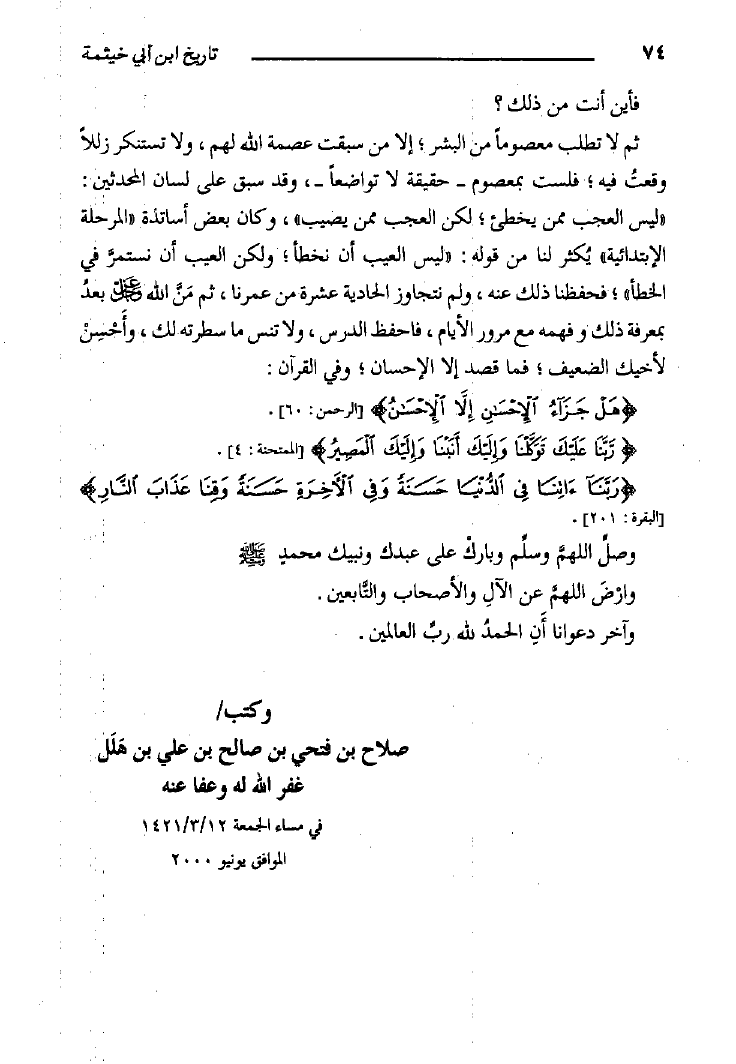 ٧٤ تاريخ ابن أبي خيثمة
فأين أنت من ذلك ؟
ثم لا تطلب معصوماً من البشر ؛ إلا من سبقت عصمة الله لهم ، ولا تستنكر زللاً
وقعتُ فيه ؛ فلست بمعصوم - حقيقة لا تواضعاً - ، وقد سبق على لسان المحدثين :
«ليس العجب ممن يخطئ ؛ لكن العجب ممن يصيب» ، وكان بعض أساتذة «المرحلة
الإبتدائية» يُكثر لنا من قوله : «ليس العيب أن نخطأ ؛ ولكن العيب أن نستمرَّ في
الخطأ» ؛ فحفظنا ذلك عنه ، ولم نتجاوز الحادية عشرة من عمرنا ، ثم مَنَّ الله ﷿ بعدُ
بمعرفة ذلك وفهمه مع مرور الأيام ، فاحفظ الدرس ، ولا تنس ما سطرته لك ، وأَحْسِنْ
لأخيك الضعيف ؛ فما قصد إلا الإحسان ؛ وفي القرآن :
﴿هَلْ جَزَآءُ ٱلْإِحْسَٰنِ إِلَّا ٱلْإِحْسَٰنُ﴾ [الرحمن : ٦٠] .
﴿رَّبَّنَا عَلَيْكَ تَوَكَّلْنَا وَإِلَيْكَ أَنَبْنَا وَإِلَيْكَ ٱلْمَصِيرُ﴾ [الممتحنة : ٤] .
﴿رَبَّنَآ ءَاتِنَا فِى ٱلدُّنْيَا حَسَنَةً وَفِى ٱلْأَخِرَةِ حَسَنَةً وَقِنَا عَذَابَ ٱلنَّارِ﴾
[البقرة : ٢٠١] .
وصلِّ اللهمَّ وسلِّم وباركْ على عبدك ونبيك محمدٍ ﷺ
وارْضَ اللهمَّ عن الآلِ والأصحاب والتَّابعين .
وآخر دعوانا أَنِ الحمدُ لله ربِّ العالمين .
وكتب/
صلاح بن فتحي بن صالح بن علي بن هَلَل
غفر الله له وعفا عنه
في مساء الجمعة ١٤٢١/٣/١٢
الموافق يونيو ٢٠٠٠